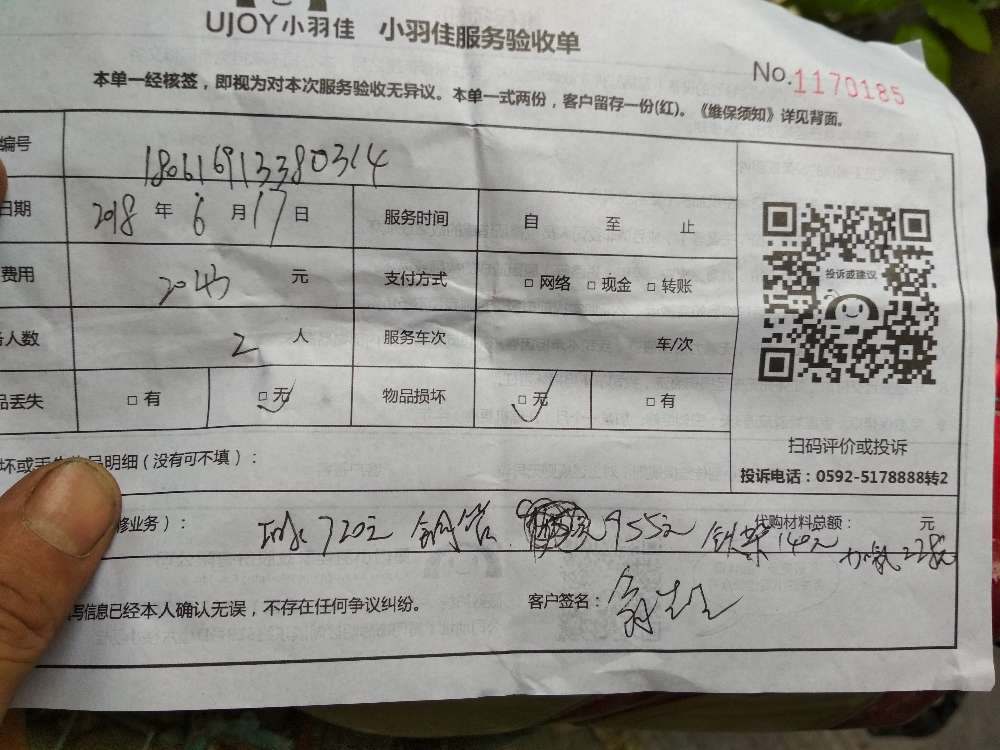 UJOY小羽佳 小羽佳服务验收单
No.1170185
本单一经核签，即视为对本次服务验收无异议。本单一式两份，客户留存一份(红)。《维保须知》详见背面。
编号 180616913380314
日期 2018 年 6 月 17 日 服务时间 自 至 止
费用 2043 元 支付方式 □ 网络 □ 现金 □ 转账
人数 2 人 服务车次 车/次
品丢失 □ 有 □ 无 物品损坏 □ 无 □ 有
投诉或建议
扫码评价或投诉
投诉电话：0592-5178888转2
明细（没有可不填）：
修业务）： 720元 铜管 955元 铁架 140元 加氟 228元
代购材料总额： 元
写信息已经本人确认无误，不存在任何争议纠纷。 客户签名：